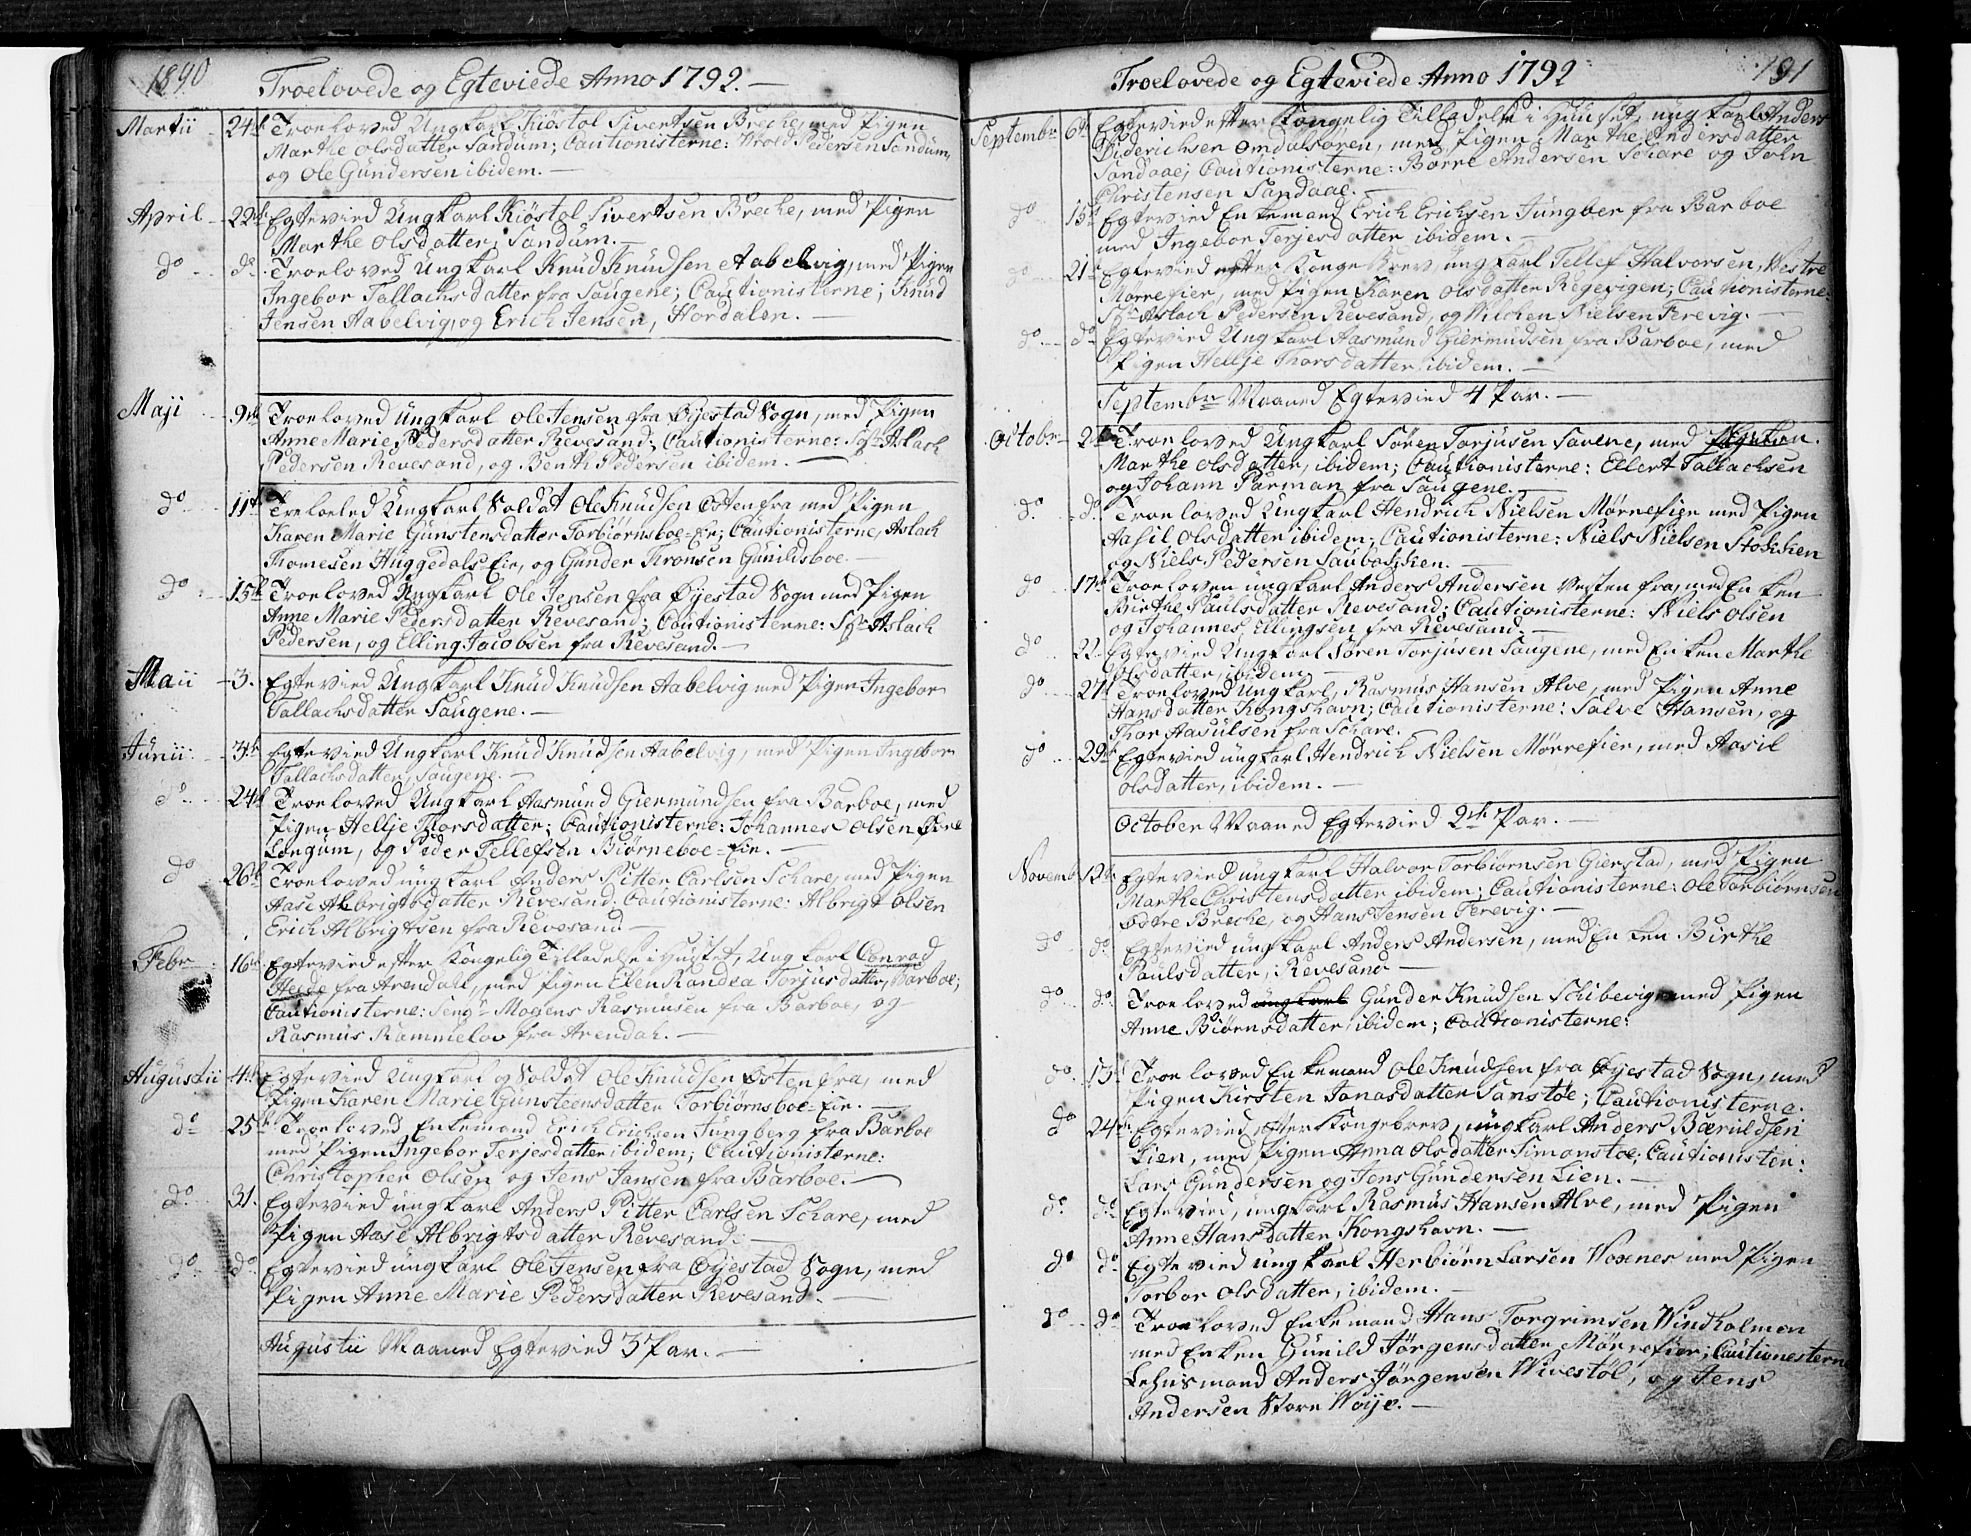 1890
Troelovede og Egteviede Anno 1792.
Martii 24de Troeloved Ungkarl Kiöstol Sivertsen Breche, med Pigen
Marthe Olsdatter Sandum; Cautionisterne: Wrold Pedersen Sandum,
og Ole Gundersen ibidem.
April 22de Egtevied Ungkarl Kiöstol Sivertsen Breche, med Pigen
Marthe Olsdatter Sandum.
do do Troeloved Ungkarl Knud Knudsen Aabelvig, med Pigen
Ingebor Tallachsdatter fra Saugene; Cautionisterne; Knud
Jensen Aabelvig, og Erich Jensen, Hordalen.
Maji 9de Troeloved Ungkarl Ole Jensen fra Öyestad Sogn, med Pigen
Anne Marie Pedersdatter Revesand; Cautionisterne: Sr Aslach
Pedersen Revesand, og Benth Pedersen ibidem.
do 11te Troeloved Ungkarl Soldat Ole Knudsen Östenfra med Pigen
Karen Marie Gunstensdatter Torbiörnsboe-Eie; Cautionisterne, Aslach
Thomesen Huggedals-Eie, og Gunder Aronsen Gunildsboe
do 15de Troeloved Ungkarl Ole Jensen fra Öyestad Sogn med Pigen
Anne Marie Pedersdatter Revesand; Cautionisterne: Sr Aslach
Pedersen, og Elling Jacobsen fra Revesand.
Maii 3. Egtevied Ungkarl Knud Knudsen Aabelvig med Pigen Ingebor
Tallachsdatter Saugene.
Junii 3de Egtevied Ungkarl Knud Knudsen Aabelvig, med Pigen Ingebor
Tallachsdatter, Saugene.
do 24de Troeloved Ungkarl Aasmund Giermundsen fra Barboe, med
Pigen Hellje Thorsdatter; Cautionisterne: Johannes Olsen Övre
Longum, og Peder Tellefsen Biörneboe-Eie.
do 26de Troeloved ungkarl Anders Pitter Carlsen Schare, med Pigen
Aase Albrigtsdatter Revesand. Cautionisterne: Albrigt Olsen
Erich Albrigtsen fra Revesand
Febr 16de Egtevied efter Kongelig Tilladelse i Huuset, Ungkarl Conrad
Heide fra Arendal, med Pigen Elen Kandea Torjusdatter, Barboe;
Cautionisterne: Sengr Mogens Rasmusen fra Barboe, og
Rasmus Rammelov fra Arendal.
Augustii 4de Egtevied Ungkarl og Soldat Ole Knudsen Östenfra, med
Pigen Karen Marie Gunsteensdatter Torbiörnsboe-Eie.
do 25de Troeloved Enkemand Erich Erichsen Jungberg fra Barboe
med Pigen Ingebor Terjesdatter ibidem; Cautionisterne:
Christopher Olsen og Jens Jansen fra Barboe.
do 31. Egtevied ungkarl Anders Pitter Carlsen Schare, med
Pigen Aase Albrigtsdatter Revesand.
do do Egtevied ungkarl Ole Jensen fra Öyestad Sogn, med
Pigen Anne Marie Pedersdatter Revesand.
Augustii Maaned Egtevied 3 Par.
191
Troelovede og Egteviede Anno 1792
Septembr 6te Egtevied efter Kongelig Tilladelse i Huuset, ungkarl Anders
Diderichsen Omdalsören, med Pigen Marthe Andersdatter
Sandaae; Cautionisterne: Börre Andersen Schare og John
Christensen Sandaae.
do 15de Egtevied Enkemand Erich Erichsen Jungber fra Barboe
med Ingebor Terjesdatter ibidem.
do 21de Egtevied efter Kongebrev, ungkarl Tellef Halvorsen, Westre
Mörrefier, med Pigen Karen Olsdatter Regevigen; Cautionisterne:
Sr Aslach Pedersen Revesand, og Wilchen Nielsen Ferevig.
do do Egtevied Ungkarl Aasmund Giermundsen fra Barboe, med
Pigen Hellje Thorsdatter ibidem.
Septembr Maaned Egtevied 4 Par.
Octobr 2de Troeloved Ungkarl Sören Torjusen Savene, med
Marthe Olsdatter, ibidem; Cautionisterne: Ellert Tallachsen
og Johann Parman fra Saugene.
do do Troeloved Ungkarl Hendrich Nielsen Mörrefier med Pigen
Aasil Olsdatter ibidem; Cautionisterne: Niels Nielsen Stokken
og Niels Pedersen Saubakken.
do 17de Troeloven ungkarl Anders Andersen Vestenfra, med Enken
Birthe Paulsdatter Revesand; Cautionisterne: Niels Olsen
og Johannes Ellingsen fra Revesand.
do 22. Egtevied Ungkarl Sören Torjusen Saugene, med Enken Marthe
Olsdatter, ibidem.
do 27de Troeloved Ungkarl, Rasmus Hansen Alve, med Pigen Anne
Hansdatter Kongshavn; Cautionisterne: Salve Hansen, og
Thor Aasulsen fra Schare.
do 29de Egtevied ungkarl Hendrich Nielsen Mörrefier, med Aasil
Olsdatter, ibidem.
October Maaned Egtevied 2de Par.
Novemb. 12te Egtevied ungkarl Halvor Torbiörnsen Gierstad, med Pigen
Marthe Christensdatter ibidem; Cautionisterne: Ole Torbiörnsen
Östre Breche, og Hans Jensen Ferevig.
do do Egtevied ungkarl Anders Andersen, med Enken Birthe
Paulsdatter, Revesand
do do Troeloved ungkarl Gunder Knudsen Schibevig med Pigen
Anne Biörnsdatter, ibidem; Cautionisterne:
do 13de Troeloved Enkemand Ole Knudsen fra Öyestad Sogn, med
Pigen Kirsten Jonasdatter Sanstöe; Cautionisterne.
do 24de Egtevied, efter Kongebrev, ungkarl Anders Bæruldsen
Lien, med Pigen Anna Olsdatter Simonstoe; Cautionister:
Lars Gundersen og Jens Gundersen Lien.
do do Egtevied, ungkarl Rasmus Hansen Alve, med Pigen
Anne Hansdatter Kongshavn.
do do Egtevied ungkarl Herbiörn Larsen Woxnes med Pigen
Torbor Olsdatter, ibidem.
do do Troeloved Enkemand Hans Torgrimsen Windholmen
med Enken Gunild Jörgensdatter Mörrefier; Cautionisterne
Lehnsmand Anders Jörgensen Wivestöl, og Jens
Andersen Store Woije.